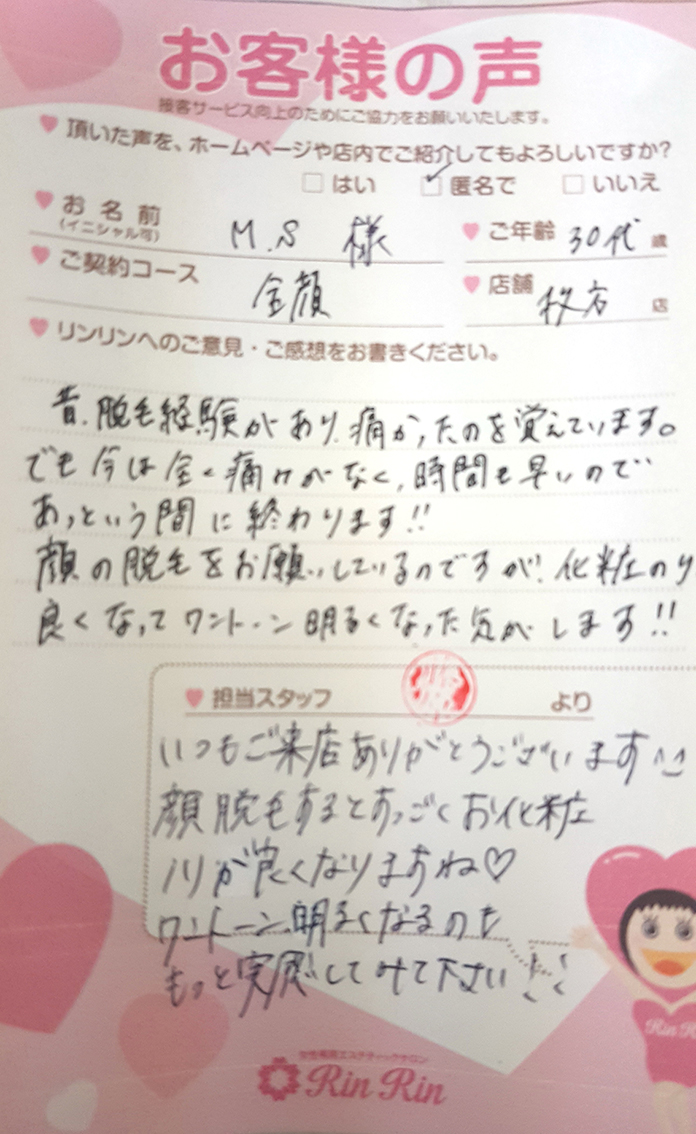 お客様の声
接客サービス向上のためにご協力をお願いいたします。
頂いた声を、ホームページや店内でご紹介してもよろしいですか?
□ はい ☑ 匿名で □ いいえ
お名前 M.S 様 ご年齢 30代 歳
(イニシャル可)
ご契約コース 全顔 店舗 枚方 店
リンリンへのご意見・ご感想をお書きください。
昔、脱毛経験があり、痛かったのを覚えています。
でも今は全く痛みがなく、時間も早いので
あっという間に終わります!!
顔の脱毛をお願いしているのですが、化粧のり
良くなってワントーン明るくなった気がします!!
担当スタッフ より
いつもご来店ありがとうございます^^
顔脱毛するとすっごくお化粧
ノリが良くなりますね♡
ワントーン明るくなるのも
もっと実感してみて下さい!!
女性専用エステティックサロン
Rin Rin
Rin R